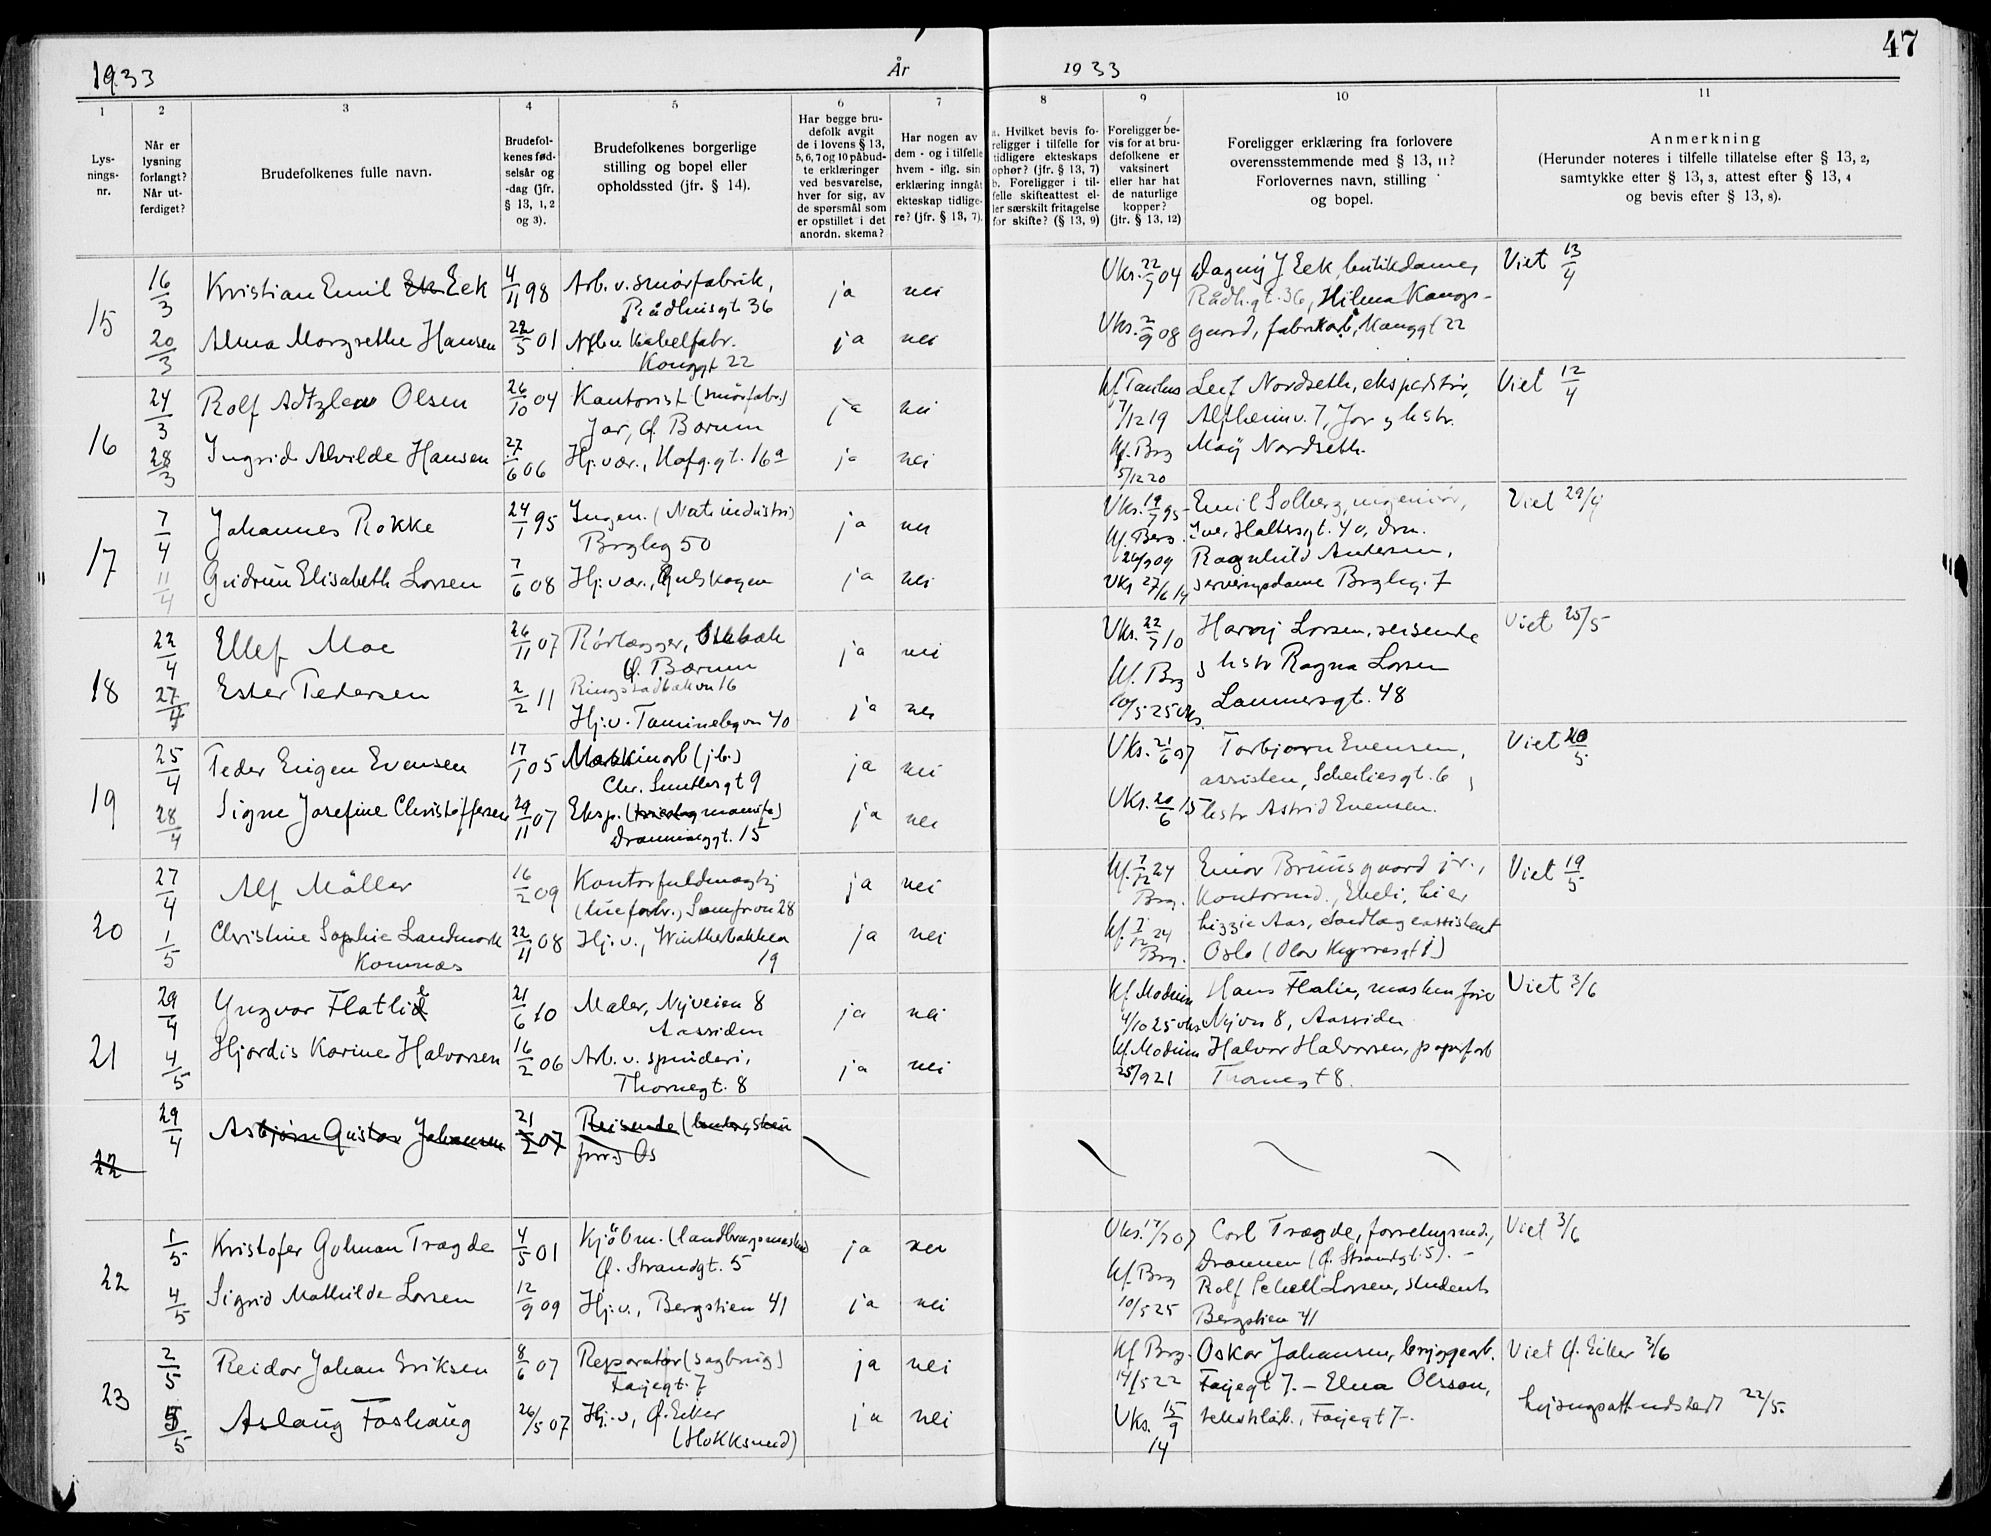 47
1933
År
1933
1
2
3
4
5
6
7
8
9
10
11
Lys-
nings-
nr.
Når er
lysning
forlangt?
Når ut-
ferdiget?
Brudefolkenes fulle navn.
Brudefol-
kenes fød-
selsår og
-dag (jfr.
§ 13, 1, 2
og 3).
Brudefolkenes borgerlige
stilling og bopel eller
opholdssted (jfr. § 14).
Har begge bru-
defolk avgit
de i lovens § 13,
5, 6, 7 og 10 påbud-
te erklæringer
ved besvarelse,
hver for sig, av
de spørsmål som
er opstillet i det
anordn. skema?
Har nogen av
dem - og i tilfelle
hvem - iflg. sin
erklæring inngåt
ekteskap tidlige-
re? (jfr. § 13, 7).
a. Hvilket bevis fo-
religger i tilfelle for
tidligere ekteskaps
ophør? (jfr. § 13, 7)
b. Foreligger i til-
felle skifteattest el-
ler særskilt fritagelse
for skifte? (§ 13, 9)
Foreligger be-
vis for at bru-
defolkene er
vaksinert
eller har hat
de naturlige
kopper?
(jfr. § 13, 12)
Foreligger erklæring fra forlovere
overensstemmende med § 13, 11?
Forlovernes navn, stilling
og bopel.
Anmerkning
(Herunder noteres i tilfelle tillatelse efter § 13, 2,
samtykke efter § 13, 3, attest efter § 13, 4
og bevis efter § 13, 8).
15
16/3
Kristian Emil Ek Eek
4/11 98
Arb. v. smørfabrik,
Rådhusgt 36
ja
nei
Vks. 22/7 04
Dagny J Eek, butikdame,
Rådh.gt. 36, Hilma Kongs-
Viet 13/4
20/3
Alma Margrethe Hansen
22/5 01
Kabelfabr.
Konggt 22
ja
nei
Vks. 2/9 08
gaard, fabrikarb, Konggt 22
16
24/3
Rolf Olsen
26/10 04
Kontorist (smørfabr.)
Jar, Ø. Bærum
ja
nei
Kf.
7/12 19
Leif Nordseth, ekspeditør,
Alfheimv. 7, Jar og hstr.
Viet 12/4
28/3
Ingrid Alvilde Hansen
27/6 06
Hj. vær., Hafg.gt. 16a
ja
nei
Kf. Brg
5/12 20
May Nordseth.
17
7/4
Johannes Rokke
24/1 95
Ingen. (Nat. industri)
Brgleg 50
ja
nei
Vks. 19/7 95
Kf. Berg.
26/9 09
Emil Solberg, ingeniør,
Ive. Hallersgt. 40, Drm.
Viet 29/4
11/4
Gudrun Elisabeth Larsen
7/6 08
Hj. vær., Gulskogen
ja
nei
Vks 27/6 14
Ragnhild Andersen,
serveringsdame Brgleg. 7
18
22/4
Ellef Moe
26/11 07
Rørlegger,
Ø. Bærum
ja
nei
Vks. 22/7 10
Harry Larsen, reisende
Viet 25/5
27/4
Ester Pedersen
2/2 11
Ringstadbakvn 16
Hj. v. 40
ja
nei
Kf. Brg
10/5 25 vks
og hstr Ragna Larsen
Lammersgt. 48
19
25/4
Peder Eugen Evensen
17/1 05
Maskinarb (jb.)
Chr. gt 9
ja
nei
Vks. 21/6 07
Torbjørn Evensen,
assisten, Scheitliesgt. 6,
Viet 20/5
28/4
Signe Josefine Christoffersen
29/11 07
Eksp. (manufa)
Dronninggt. 15
ja
nei
Vks. 20/6 15
hstr Astrid Evensen.
20
27/4
Alf Möller
16/2 09
Kontorfuldmægtig
28
ja
nei
Kf. 7/12 24
Brg.
Einar Bruusgaard jr.,
Kontormd., Ebeli, Lier
Viet 19/5
1/5
Christine Sophie Landmark
Komnæs
22/11 08
Hj. v., Wintherbakken
19
ja
nei
Kf. 7/12 24
Brg.
Lizzie Aas, tandlægeassistent
Oslo (Olav Kyrresgt 1)
21
29/4
Yngvar Flatlie
21/6 10
Maler, Nyveien 8
Aassiden
ja
nei
Kf. Modum
4/10 25 vks
Hans Flatlie,
Nyvn 8, Aassiden
Viet 3/6
4/5
Hjørdis Karine Halvorsen
16/2 06
Arb. v. spinderi,
Thornegt. 8
ja
nei
Kf. Modum
25/9 21
Halvor Halvorsen, papirarb
Thornegt 8.
22
29/4
Asbjørn Gustav Johansen
21/2 07
Reisende
Os
22
1/5
Kristofer Golman Trægde
4/5 01
Kjøbm. (landbruksmask)
Ø. Strandgt. 5
ja
nei
Vks. 17/7 07
Carl Trægde, forretningsmd.,
Drammen (Ø. Strandgt. 5). -
Viet 3/6
4/5
Sigrid Mathilde Larsen
12/9 09
Hj. v., Bergstien 41
ja
nei
Kf. Brg
10/5 25
Rolf Schøtt Larsen, student
Bergstien 41
23
2/5
Reidar Johan Eriksen
8/6 07
Reparatør (sagbruk)
Færjegt. 7
ja
nei
Kf Brg.
14/5 22
Oskar Johansen, bryggearb.
Færjegt 7. - Elna Olsson,
Viet Ø. Eiker 3/6
5/5
Aslaug Foshaug
26/5 07
Hj. v, Ø. Eiker
(Hokksund)
ja
nei
Vks. 15/9 14
tekstilarb., Færjegt 7-.
Lysngsatt udstedt 22/5.